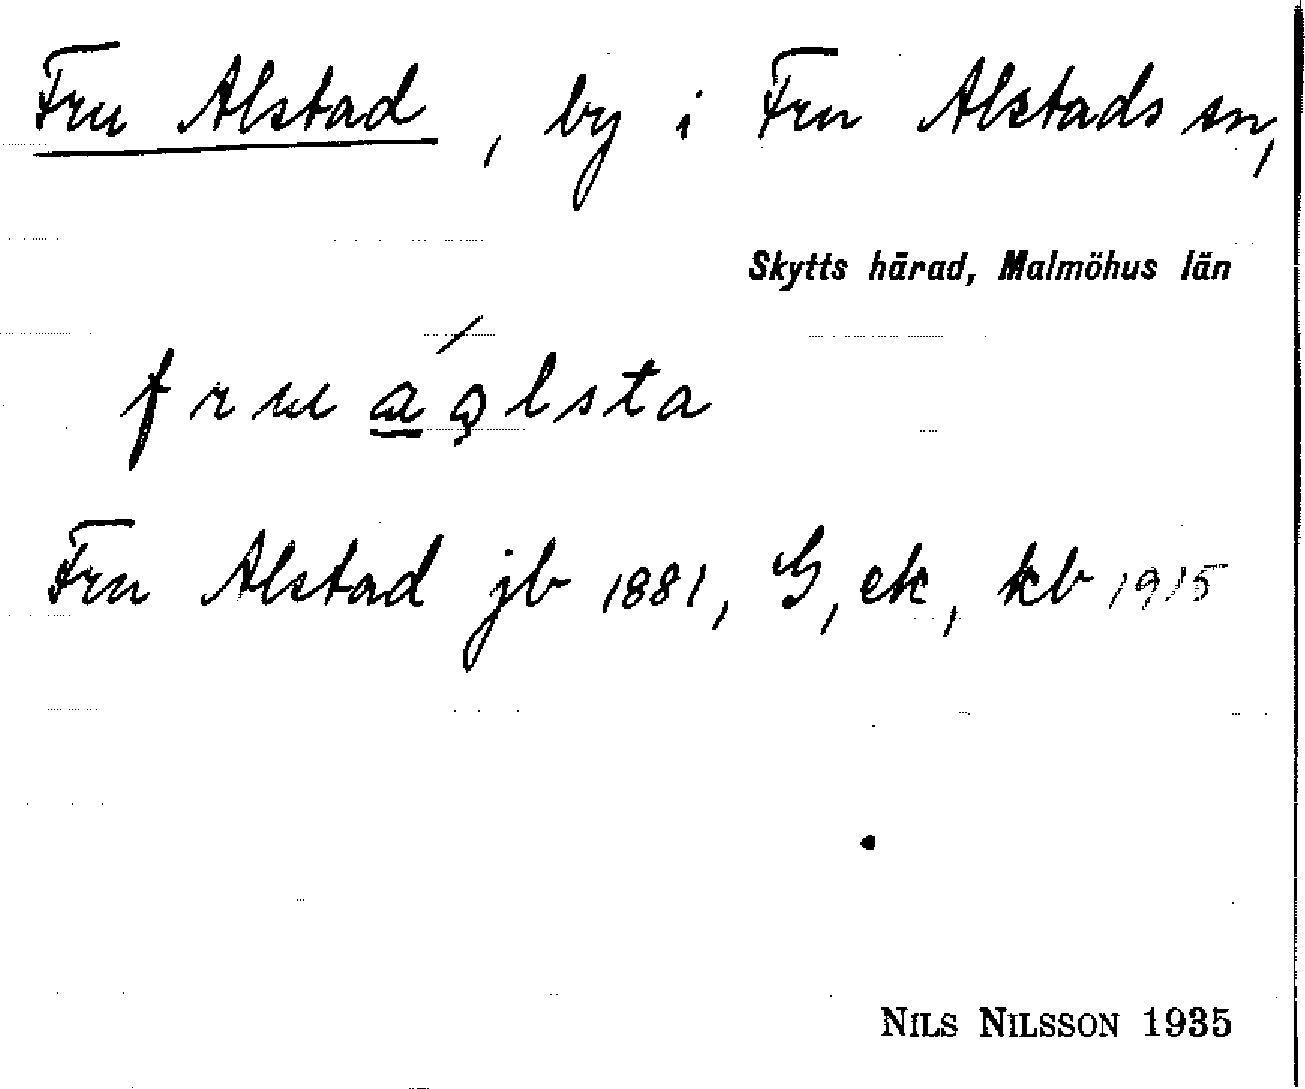 Fru Alstad, by i Fru Alstads sn,
Skytts härad, Malmöhus län
Fru Alstad jb 1881, G, ek, kb 1915
NILS NILSSON 1935